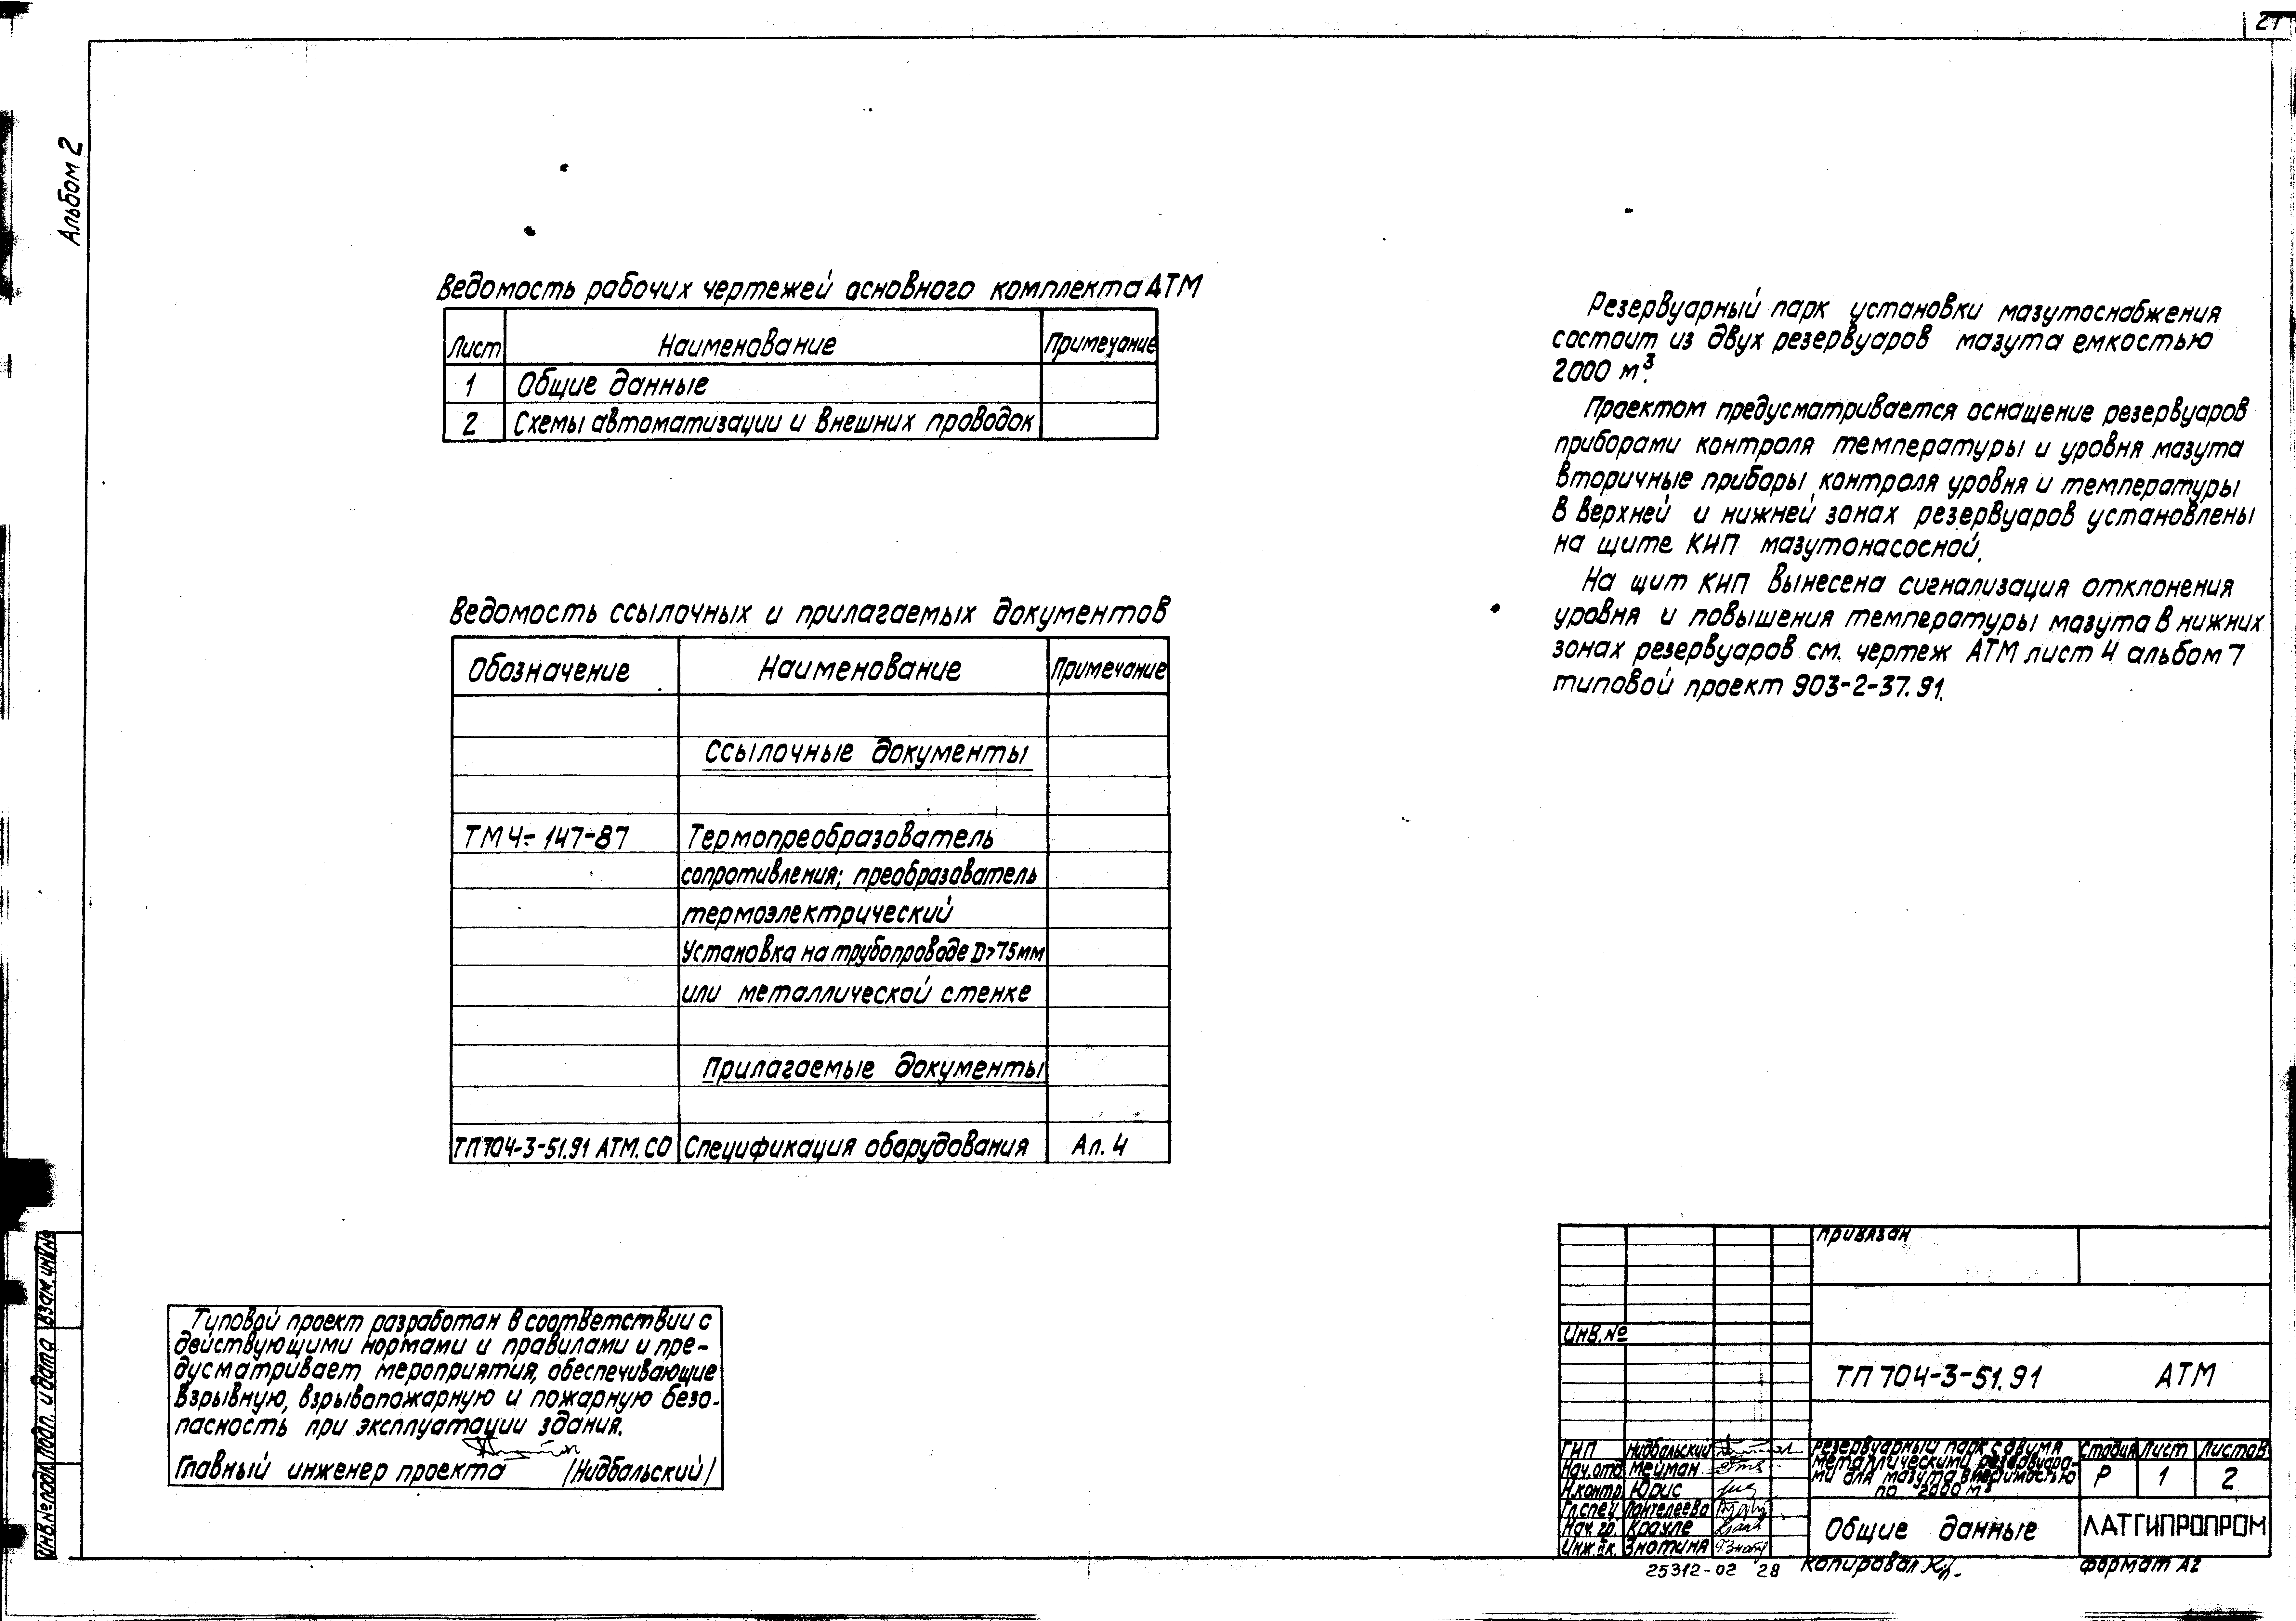 27
Альбом 2
Ведомость рабочих чертежей основного комплекта АТМ
Лист Наименование Примечание
1 Общие данные
2 Схемы автоматизации и внешних проводок
Ведомость ссылочных и прилагаемых документов
Обозначение Наименование Примечание
Ссылочные документы
ТМ4-147-87 Термопреобразователь
сопротивления; преобразователь
термоэлектрический
Установка на трубопроводе D>75мм
или металлической стенке
Прилагаемые документы
ТП704-3-51.91 АТМ.СО Спецификация оборудования Ал. 4
Резервуарный парк установки мазутоснабжения
состоит из двух резервуаров мазута емкостью
2000 м³.
Проектом предусматривается оснащение резервуаров
приборами контроля температуры и уровня мазута
Вторичные приборы контроля уровня и температуры
в верхней и нижней зонах резервуаров установлены
на щите КИП мазутонасосной.
На щит КИП вынесена сигнализация отклонения
уровня и повышения температуры мазута в нижних
зонах резервуаров см. чертеж АТМ лист 4 альбом 7
типовой проект 903-2-37.91.
Типовой проект разработан в соответствии с
действующими нормами и правилами и пре-
дусматривает мероприятия, обеспечивающие
взрывную, взрывопожарную и пожарную безо-
пасность при эксплуатации здания.
Главный инженер проекта /Нидбальский/
Инв.№ подл. Подп. и дата Взам. инв.№
Привязан
Инв.№
ТП 704-3-51.91 АТМ
ГИП Нидбальский
Нач.отд Мейман
Н.контр Юрис
Гл.спец Пантелеева
Нач. гр. Крауле
Инж. IIк. Знотиня
Резервуарный парк с двумя
металлическими резервуара-
ми для мазута вместимостью
по 2000 м³
Стадия Лист Листов
Р 1 2
Общие данные
ЛАТГИПРОПРОМ
25312-02 28 Копировал Формат А2